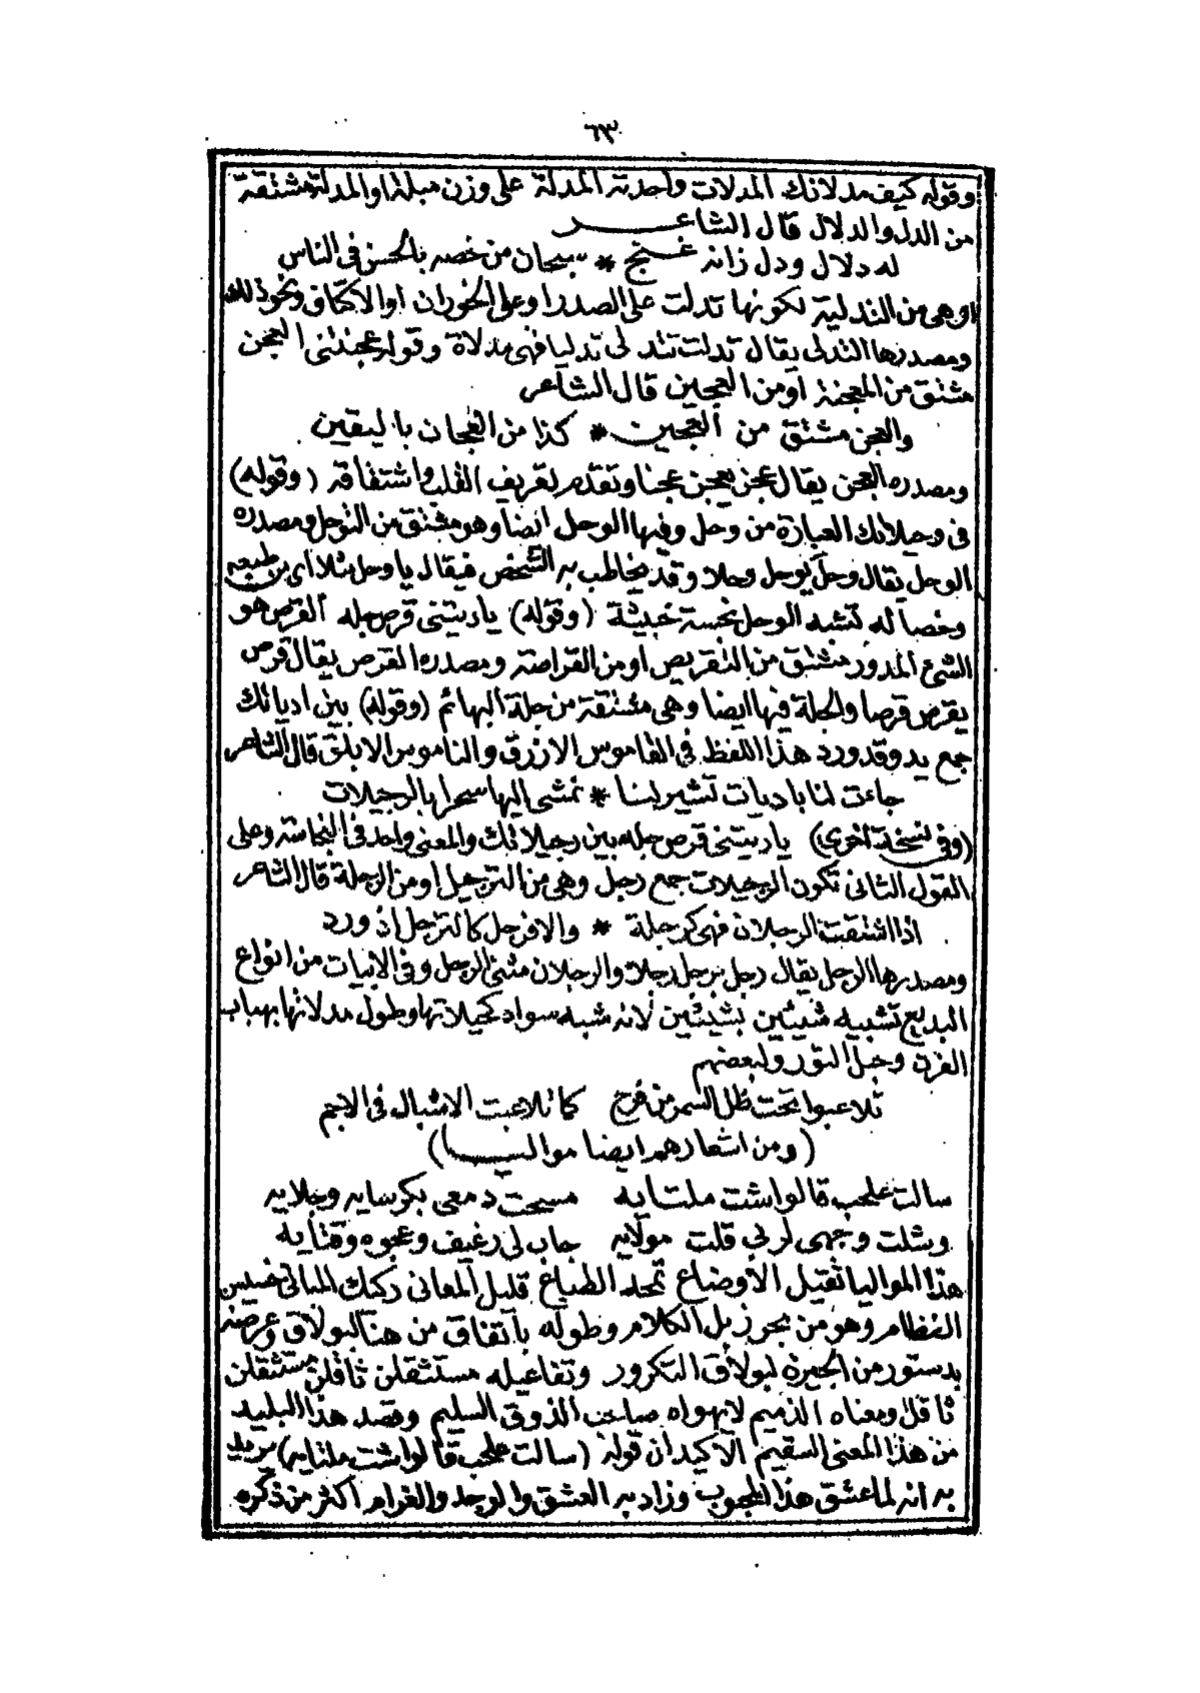 ٦٣
وقوله كيف مدلاتك المدلات واحدته المدلة على وزن مبلة او المدلة مشتقة
من الدل والدلال قال الشاعر
له دلال ودل زانه غنج * سبحان من خصه بالحسن فى الناس
او هى من التدلية لكونها تدلت على الصدر او على الخوران او الاكتاف ونحو ذلك
ومصدرها التدلى يقال تدلت تتدلى تدليا فهى مدلاة وقوله عجنتنى العجن
مشتق من المعجنة او من العجين قال الشاعر
والعجن مشتق من العجين * كذا من العجان باليقين
ومصدره العجن يقال عجن يعجن عجنا وتقدم تعريف القلب واشتقاقه (وقوله)
فى وحيلاتك العبارة من وحل وفيها الوحل ايضا وهو مشتق من التوحل ومصدره
الوحل يقال وحل يوحل وحلا وقد يخاطب به الشخص فيقال يا وحل مثلا اى من طبعه
وخصاله تشبه الوحل نجسة خبيثة (وقوله) ياريتنى قرص جله القرص هو
الشئ المدور مشتق من التقريص او من القراصة ومصدره القرص يقال قرص
يقرص قرصا والجلة فيها ايضا وهى مشتقة من جلة البهائم (وقوله) بين اديائك
جمع يد وقد ورد هذا اللفظ فى القاموس الازرق والناموس الابلق قال الشاعر
جاءت لنا باديات تشير لنا * نمشى اليها سحرا بالرجيلات
(وفى نسخة اخرى) ياريتنى قرص جله بين رجيلاتك والمعنى واحد فى النجاسة وعلى
القول الثانى تكون الرجيلات جمع رجل وهى من الترجيل او من الرجلة قال الشاعر
اذا اشتقت الرجلان فهى كرجلة * والا فرجل كالترجل اذ ورد
ومصدرها الرجل يقال رجل يرجل رجلا والرجلان مثنى الرجل وفى الابيات من انواع
البديع تشبيه شيئين بشيئين لانه شبه سواد كحيلاتها وطول مدلاتها بهباب
الفرن وحبل الثور ولبعضهم
تلاعبوا تحت ظل السمر من فرح كما تلاعبت الاشبال فى الاجم
(ومن اشعارهم ايضا مواليا)
سالت على الحب قالوا اشت ملتايه مسيحت دمعى بكرسايه وجلابيه
وشلت وجهى لربى قلت مولايه جاب لى رغيف وعجوه وقتايه
هذا المواليا ثقيل الأوضاع تمجه الطباع قليل المعانى ركيك المبانى خسيس
النظام وهو من بحر زبل الكلام وطوله باتفاق من هنا لبولاق وعرضه
بدستور من الجيزة لبولاق التكرور وتفاعيله مستثقلن ثاقلن مستثقلن
ثاقل ومعناه الذميم لا يهواه صاحب الذوق السليم وقصد هذا البليد
من هذا المعنى السقيم الأكيد ان قوله (سالت على الحب قالوا اشت ملتايه) يريد
به انه لما عشق هذا المحبوب وزاد به العشق والوجد والغرام اكثر من ذكره